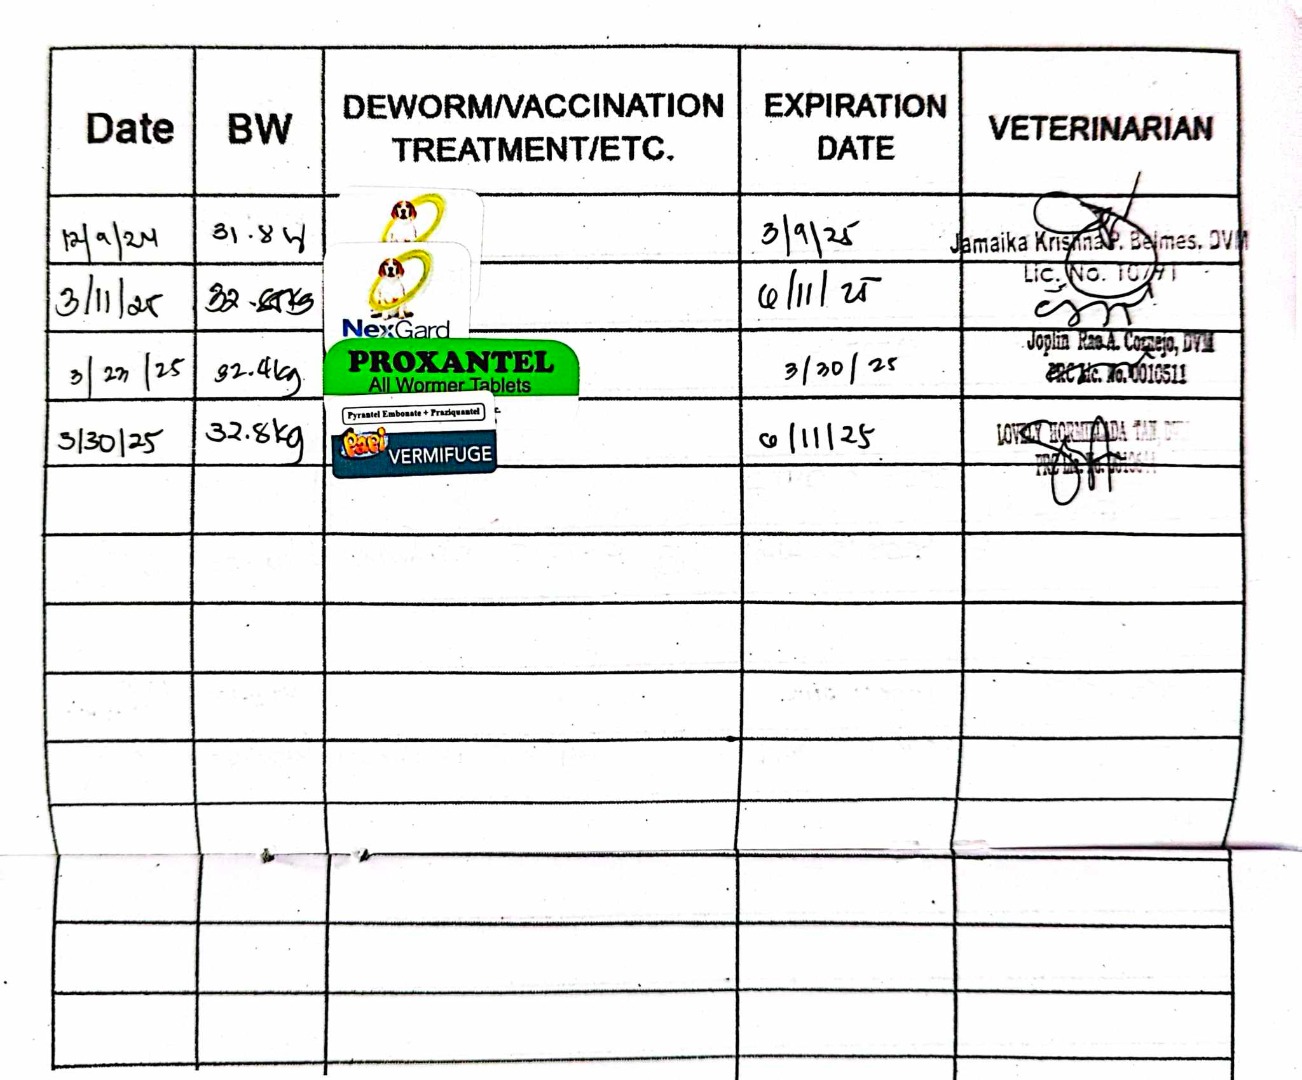 Date BW DEWORM/VACCINATION TREATMENT/ETC. EXPIRATION DATE VETERINARIAN
12/9/24 31.8 3/9/25 Jamaika Krishna P. Belmes, DVM
Lic. No.
3/11/25 32. 6/11/25
NexGard
Joplin Rae A. Cornejo, DVM
PRC Lic. No. 0010511
3/ /25 32.4kg PROXANTEL 3/30/25
All Wormer Tablets
Pyrantel Embonate + Praziquantel
3/30/25 32.8kg Paci VERMIFUGE 6/11/25 LOVELY TAN
PRC Lic. No.